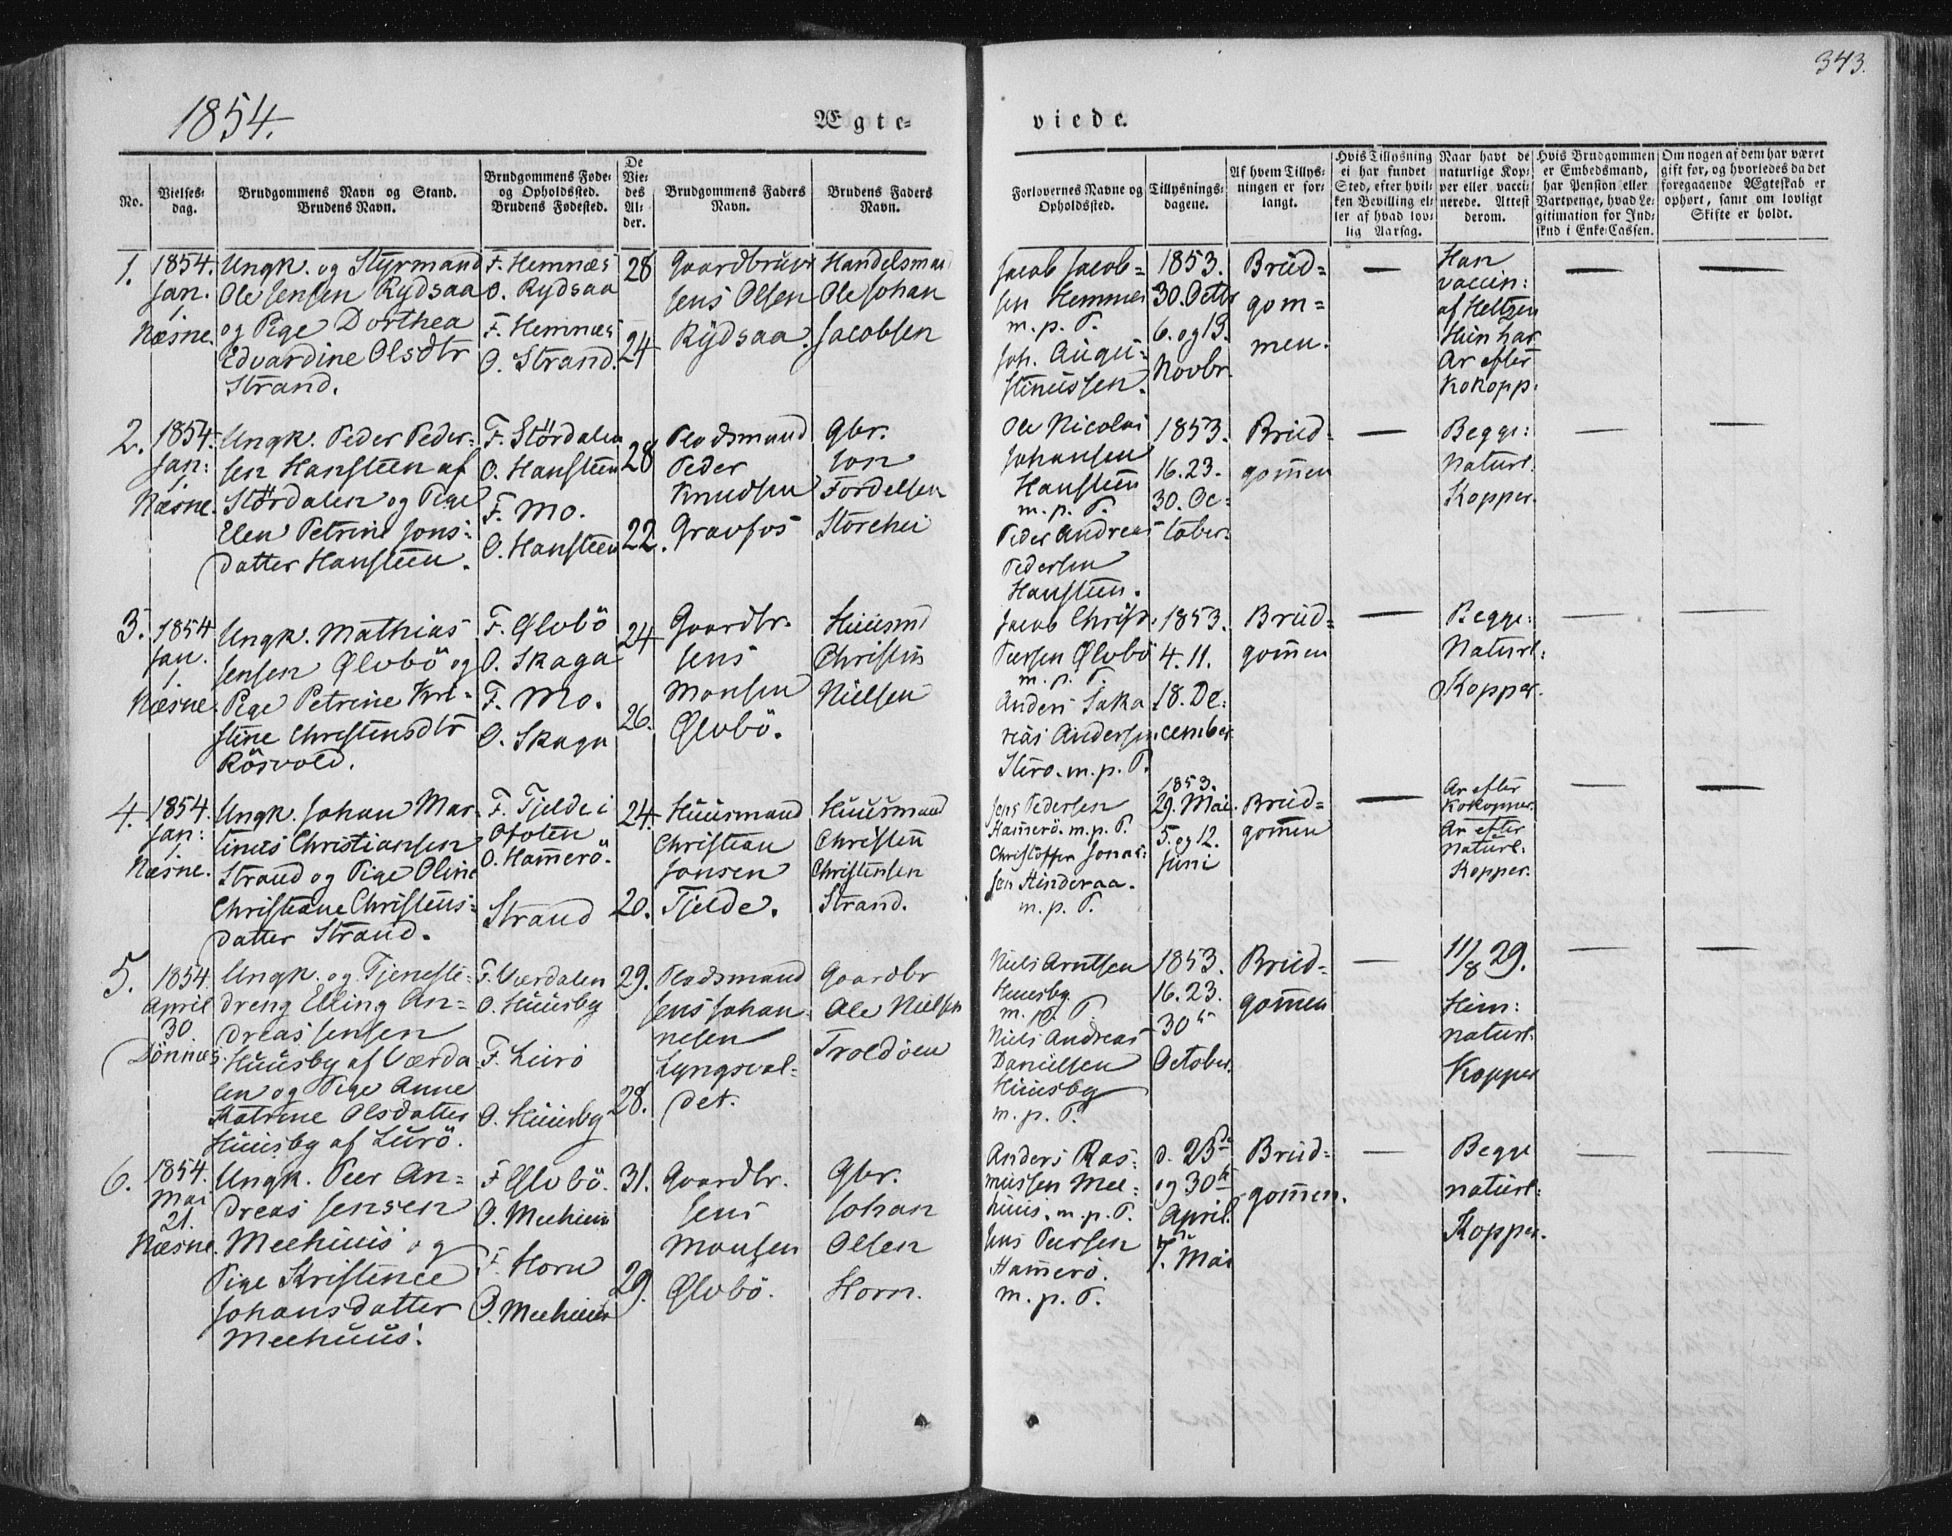 343.
1854.
Ægte=
viede.
No.
Vielses-
dag.
Brudgommens Navn og Stand.
Brudens Navn.
Brudgommens Føde-
og Opholdssted.
Brudens Fødested.
De
Vie-
des
Al-
der.
Brudgommens Faders
Navn.
Brudens Faders
Navn.
Forlovernes Navne og
Opholdssted.
Tillysnings-
dagene.
Af hvem Tillys-
ningen er for-
langt.
Hvis Tillysning
ei har fundet
Sted, efter hvil-
ken Bevilling el-
ler af hvad lov-
lig Aarsag.
Naar havt de
naturlige Kop-
per eller vacci-
nerede. Attest
derom.
Hvis Brudgommen
er Embedsmand,
har Pension eller
Vartpenge, hvad Le-
gitimation for Ind-
skud i Enke-Cassen.
Om nogen af dem har været
gift før, og hvorledes da det
foregaaende Ægteskab er
ophørt, samt om lovligt
Skifte er holdt.
1.
1854.
Jan.
Næsne.
Ungk. og Styrmand
Ole Jensen Rydsaa
og Pige Dorthea
Edvardine Olsdtr
Strand.
F. Hemnæs
O. Rydsaa
F. Hemnæs
O. Strand.
28
24
Gaardbruger
Jens Olsen
Rydsaa.
Handelsmand
Ole Johan
Jacobsen
Jacob Jacob=
sen Hemnes
m. p. P.
Joh. Augu=
stinussen.
1853.
30. Octbr
6. og 13.
Novbr.
Brüd=
gom=
men.
—
Han
vaccin:
af Heltzen
Hun har
Ar efter
Kokopp.
—
—
2.
1854.
Jan:
1
Næsne.
Ungk. Peder Peder=
sen Hansteen af
Størdalen og Pige
Elen Petrine Jons=
datter Hansteen.
F. Størdalen
O. Hansteen
F. Mo.
O. Hansteen
28
22.
Pladsmand
Peder
Knudsen
Gravfos
Gbr.
Jon
Fordelsen
Storehei
Ole Nicolai
Johansen
Hansteen
m. p. P.
Peder Andreas
Pedersen
Hansteen.
1853.
16. 23.
30. Oc=
tober.
Brüd=
gom̄en
—
Begge:
Naturl.
Kopper.
—
—
3.
1854
Jan.
1
Næsne.
Ungk. Mathias
Jensen Ølvbö og
Pige Petrine Kri=
stine Christensdtr
Rösvold.
F. Ølvbö
O. Skaga
F. Mo.
O. Skaga
24
26.
Gaardbr.
Jens
Monsen
Ølvbö.
Huusmd
Christen
Nielsen
Jacob Christ.
Peersen Ølvbö
m. p. P.
Anders Saka
rias Andersen
m. p. P.
1853.
4. 11.
18. De=
cember.
Brüd=
gom̄en
—
Begge:
Naturl:
Kopper.
—
—
4.
1854.
Jan:
1
Næsne.
Ungk. Johan Mar=
tinus Christiansen
Strand og Pige Oline
Christiane Christens=
datter Strand.
F. Tjelde i
Ofoten
O. Ham̄erö.
Strand
24.
20.
Huusmand
Christian
Jonsen
Tjelde.
Huusmand
Christen
Christensen
Strand.
Jens Pedersen
Ham̄erö. m. p. P.
Christoffer Jonas=
sen Hinderaa.
m. p. P.
1853.
29. Mai.
5. og 12.
Juni
Brüd=
gom̄en
—
Ar efter
Kokopper.
Ar efter
naturl:
Kopper.
—
—
5.
1854
April
30
Dönnæs.
Ungk. og Tjeneste=
dreng Elling An=
dreas Jensen
Huusby af Værda=
len og Pige Anne
Katrine Olsdatter
Huusby af Lurö.
F. Værdalen
O. Huusby
F. Lurö
O. Huusby
29.
28.
Pladsmand
Jens Johan=
nesen
Lyngsval=
det.
Gaardbr
Ole Nielsen
Troldöen
Niels Arntsen
Huusby
m. p. P.
Niels Andreas
Danielsen
Huusby
m. p. P.
1853.
16. 23.
30te
October.
Brüd=
gom̄en
—
11/8 29.
Hun:
naturl.
Kopper
—
—
6.
1854.
Mai
21.
Næsne.
Ungk. Peer An=
dreas Jensen
Meehuus og
Pige Kristence
Johansdatter
Meehuus.
F. Ølvbö.
O. Meehuus
F. Horn
O. Meehuus
31.
29.
Gaardbr.
Jens
Monsen
Ølvbö.
Gbr.
Johan
Olsen
Horn.
Anders Ras=
mussen Mee=
huus. m. p. P.
Jens Peersen
Ham̄erö.
m. p. P.
d. 23de
og 30te
April
7. Mai
Brüd=
gom̄en.
—
Begge
naturl:
Kopper.
—
—